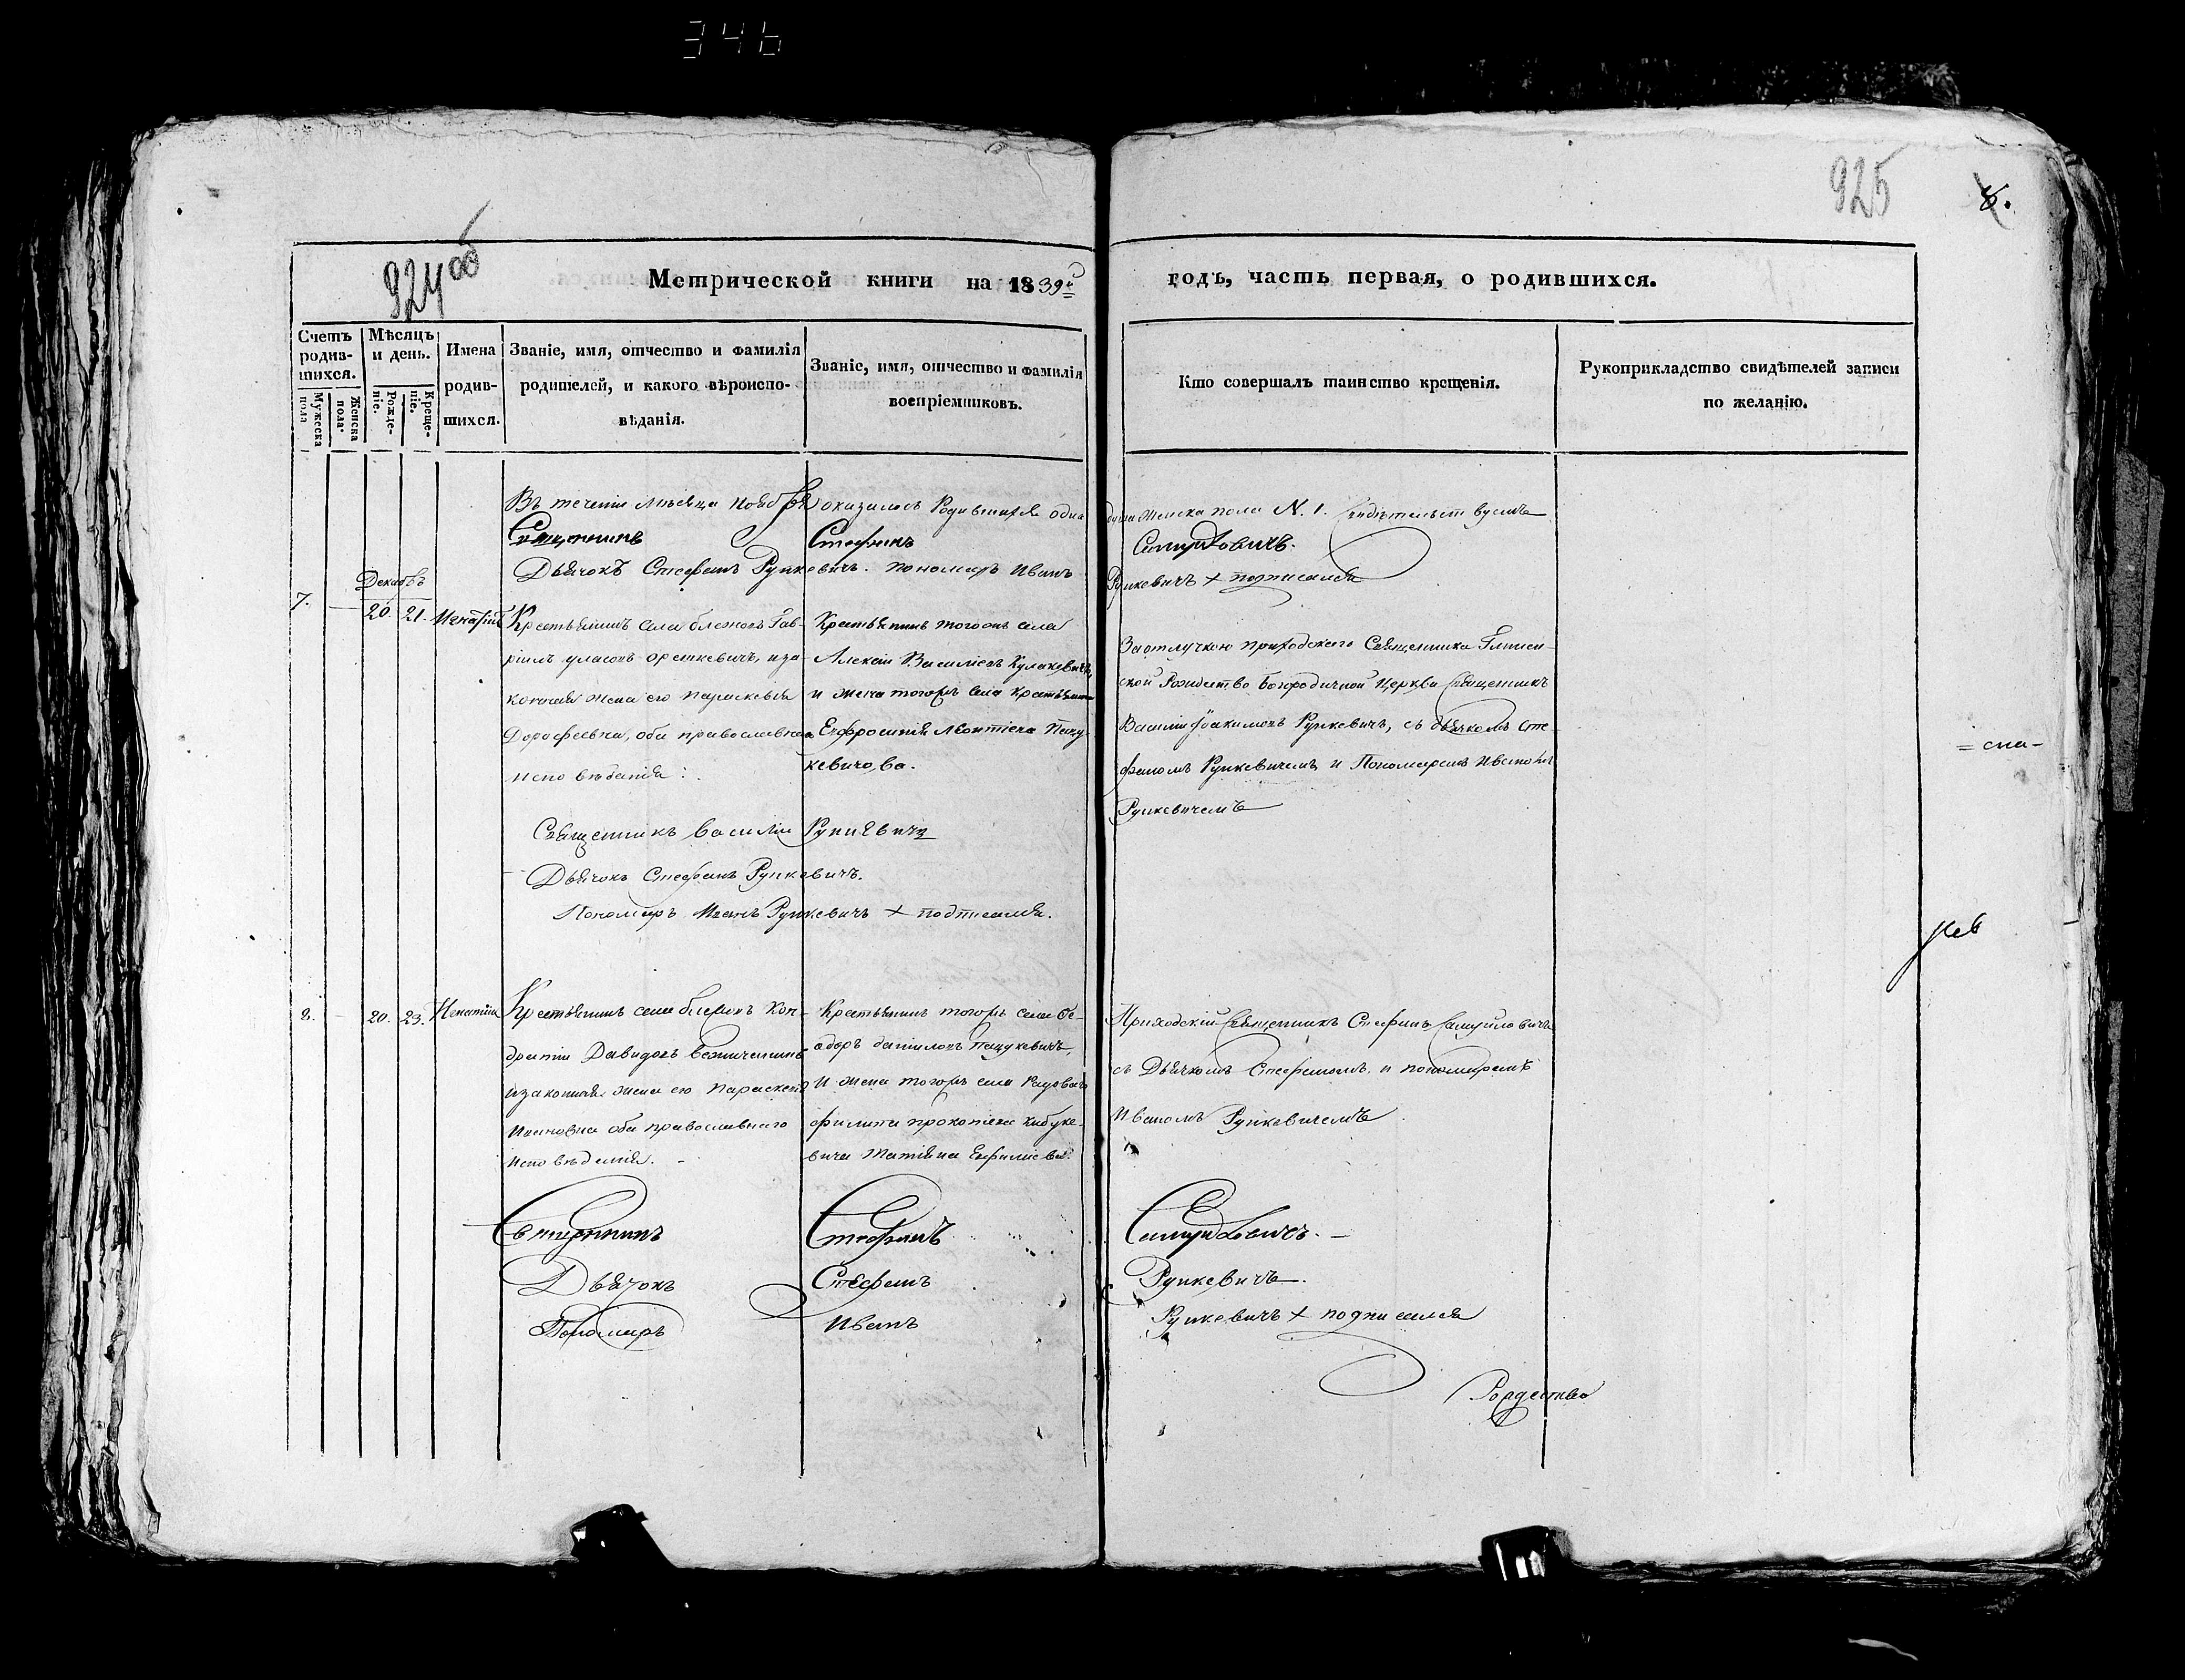 346
924 об
925
8.
Метрической книги на 1839й годъ, часть первая, о родившихся.
Счетъ родив-шихся.
Мужеска пола
Женска пола.
Мѣсяцъ и день.
Рожде-ніе.
Креще-ніе.
Имена
родив-
шихся.
Званіе, имя, отчество и фамилія
родителей, и какого вѣроиспо-
вѣданія.
Званіе, имя, отчество и фамилія
воспріемниковъ.
Кто совершалъ таинство крещенія.
Рукоприкладство свидѣтелей записи
по желанію.
Въ теченіи мѣсяца Ноября оказалось Родившихся одна душа Женска пола N. 1. Свидѣтельствуемъ
Священникъ Стефанъ Самуйловичъ.
Дьячокъ Стефанъ Рункевичъ. Пономаръ Иванъ Рункевичъ + подписался
Декабрь
7. — 20. 21. Игнатій
Крестьянинъ села
Гав-
ріилъ Уласовъ Орешкевичъ, и за-
конная жена его Параскевія
Дорофеевна, оба православнаго
исповѣданія.
Крестьянинъ тогожъ села
Алексій Василіевъ Кулакевичъ,
и жена тогожъ села крестьянина
Евфросинія Леонтіева Пацу-
кевичова.
За отлучкою приходскаго Священника
ской Рождество Богородичной Церкви Священникъ
Василій Іоакимовъ Рункевичъ, съ дьячкомъ Сте-
фаномъ Рункевичемъ и Пономаремъ Иваномъ
Рункевичемъ
= сна-
Священникъ Василій Рункевичъ
Дьячокъ Стефанъ Рункевичъ.
Пономаръ Иванъ Рункевичъ + подписался.
8. — 20. 23. Игнатій
Крестьянинъ села
Кон-
дратій Давидовъ
и законная жена его Параскевія
Ивановна оба православнаго
исповѣданія.
Крестьянинъ тогожъ села Ѳе-
одоръ Даніиловъ Пацукевичъ,
и жена тогожъ села
Филипа Прокопіева
вича Татіяна
Приходскій Священникъ Стефанъ Самуйловичъ
съ Дьячкомъ Стефаномъ, и пономаремъ
Иваномъ Рункевичемъ
Священникъ Стефанъ Самуйловичъ. —
Дьячокъ Стефанъ Рункевичъ.
Пономаръ Иванъ Рункевичъ + подписался
Рождество